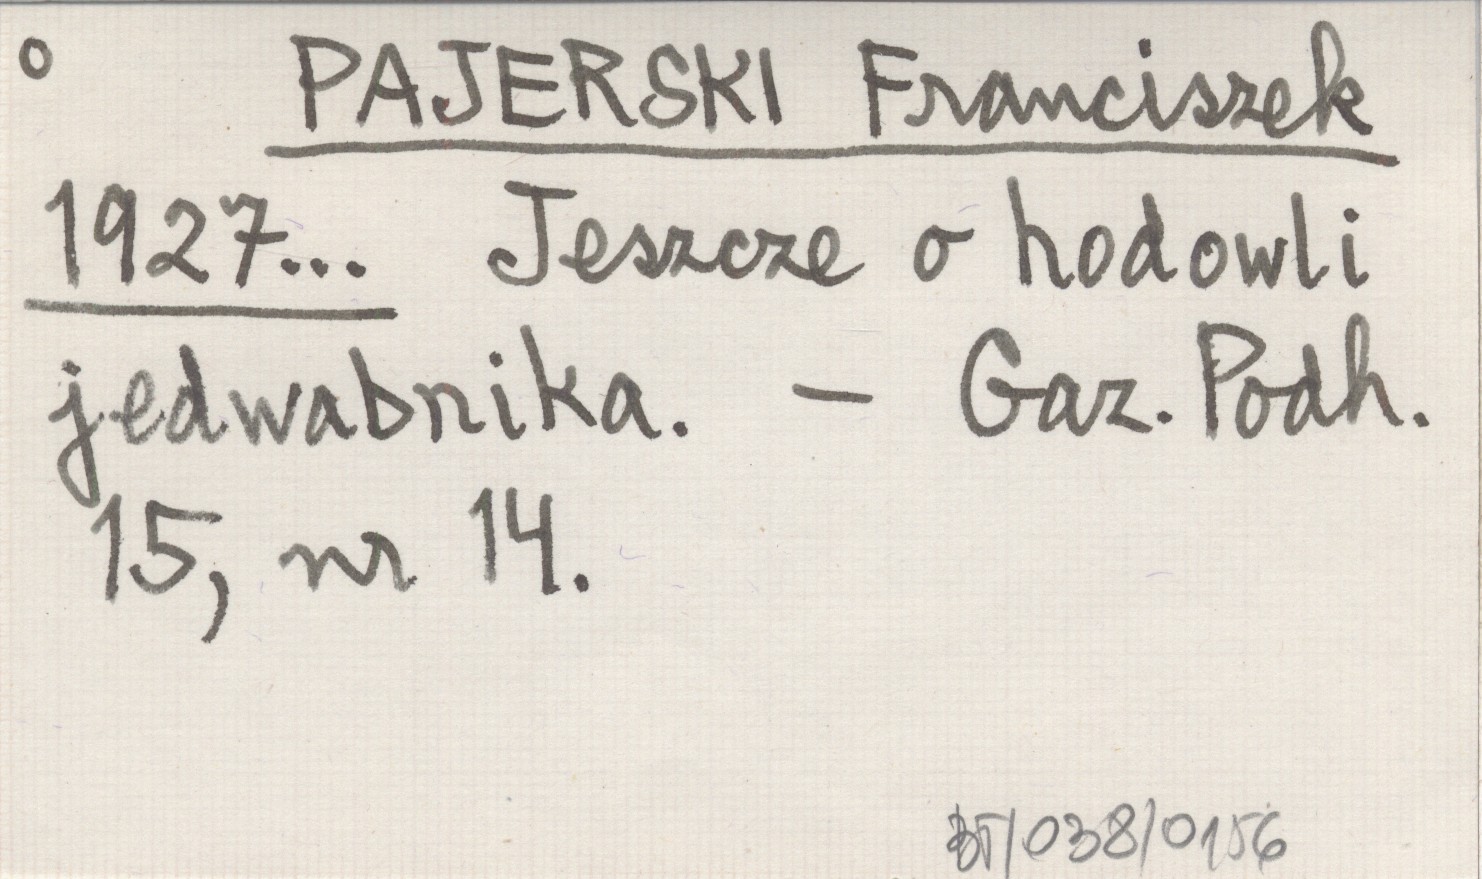 o PAJERSKI Franciszek
1927... Jeszcze o hodowli
jedwabnika. – Gaz. Podh.
15, nr 14.
BT/038/0156